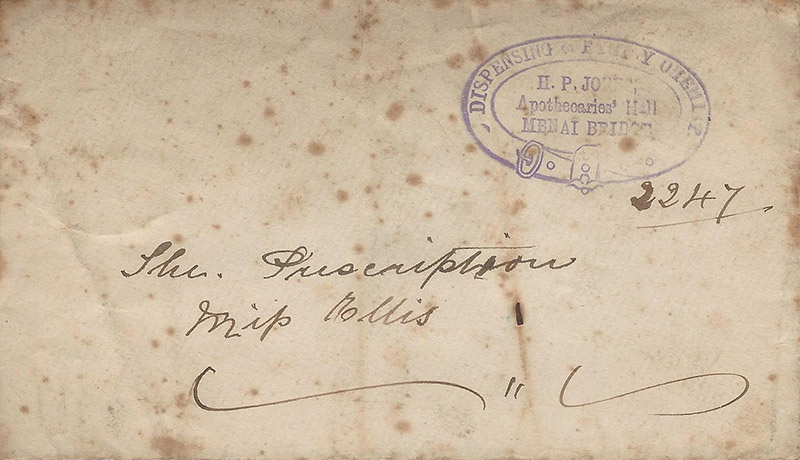 DISPENSING & FAMILY CHEMIST
H. P. JONES
Apothecaries' Hall
MENAI BRIDGE
2247
The Prescription
Miss Ellis
"